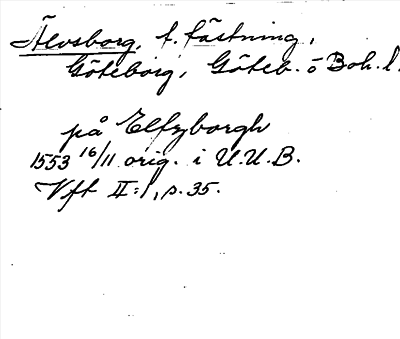 Älvsborg, f. fästning,
Göteborg, Göteb. o Boh. l.
på Elfzborgh
1553 16/11 orig. i U.U.B.
Vft II:1, s. 35.